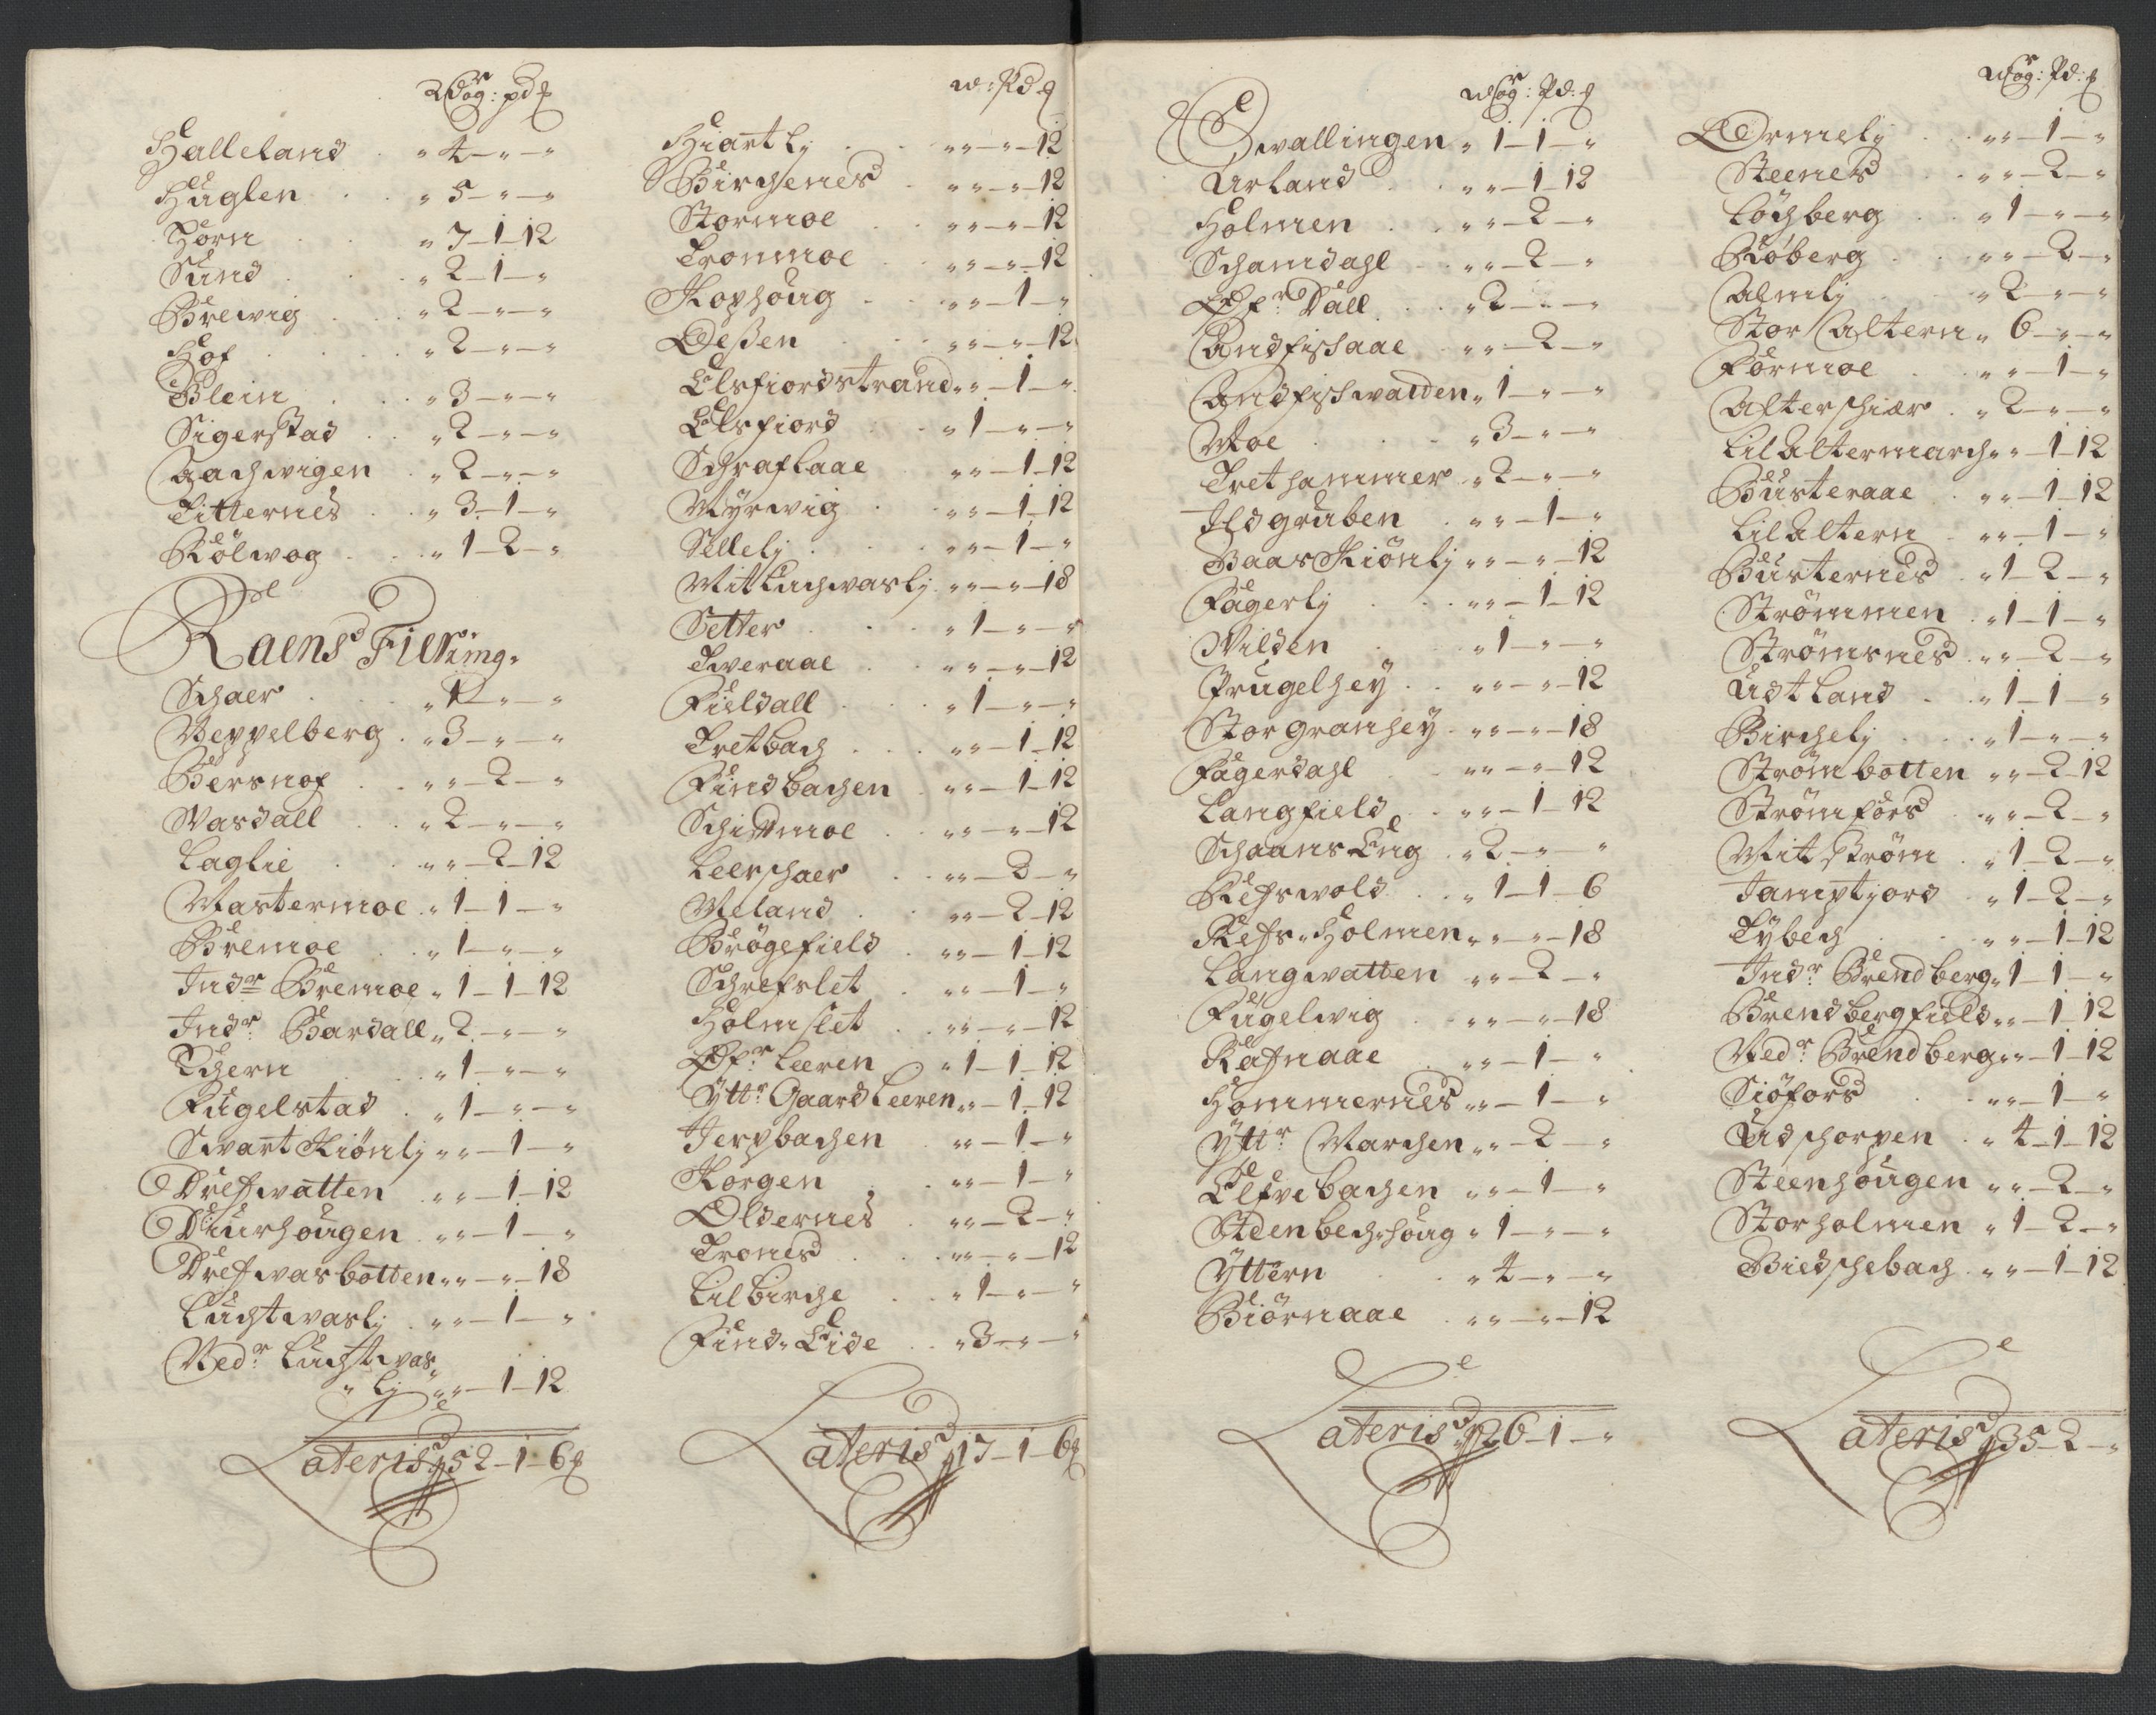 Wog: pd ƺ
Halleland . " 4 — " — "
Huglen . . " 5 — " — "
Horn . . " 7 — 1 — 12
Sund . . " 2 — 1 — "
Brewig . . " 2 — " — "
Hof . . " 2 — " — "
Blein . . " 3 — " — "
Sigerstad . . " 2 — " — "
Aachwigen . " 2 — " — "
Titternes . . " 3 — 1 — "
Kölwog . . " 1 — 2 — "
Raens Fierimg.
Schaer . . " 1 — " — "
Veppelberg . " 3 — " — "
Bersnof . . " " — 2 — "
Wasdall . . " 2 — " — "
Laglie . . " " — 2 — 12
Mastermoe . " 1 — 1 — "
Bremoe . . " 1 — " — "
Indr Bremoe . " 1 — 1 — 12
Indr Bardall . " 2 — " — "
Tchern . . " 1 — " — "
Fugelstad . " 1 — " — "
Swart Kiönlj " " — 1 — "
Drefwatten . " " — 1 — 12
Diurhougen . " " — 1 — "
Drefwasbotten " " — " — 18
Luchtwaslj . " " — 1 — "
Nedr Luchtwas
" lj " " — 1 — 12
Lateris 52 — 1 — 6 ƺ
w: Pd ƺ
Hiart lj . . " " — " — 12
Birchenes . " " — " — 12
Stormoe . " " — " — 12
Tronmoe . " " — " — 12
Kophoug . . " " — 1 — "
Deßen . . " " — " — 12
Elsfiordstrand " " — 1 — "
Elsfiord . . " 1 — " — "
Schraflaae " " — 1 — 12
Myrwig . . " " — 1 — 12
Sellelj . . " " — 1 — "
Mitluchwaslj " " — " — 18
Setter . . " 1 — " — "
Tweraae . . " " — " — 12
Fieldall . . " 1 — " — "
Tretbach . . " " — 1 — 12
Findbachen . " " — 1 — 12
Schidmoe . . " " — " — 12
Leerschaer . " " — 2 — "
Meland . . " " — 2 — 12
Brögefield . " " — 1 — 12
Schrefslet . " " — 1 — "
Holmslet . . " " — " — 12
Øfr Leeren . " 1 — 1 — 12
Yttr Gaard Leeren " " — 1 — 12
Jerpbachen . " " — 1 — "
Korgen . . " " — 1 — "
Oldernes . " " — 2 — "
Trones . . " " — " — 12
Lilbirche . . " 1 — " — "
Finds Eide . . " 3 — " — "
Lateris 17 — 1 — 6 ƺ
Wog: Pd: ƺ
Swallingen " 1 — 1 — "
Urland . . " " — 1 — 12
Holmen . . " " — 2 — "
Schamdahl . " " — 2 — "
Øfr Dall . . " 2 — " — "
Andfischaae " " — 2 — "
Andfischwatden " 1 — " — "
Moe . . . " 3 — " — "
Trethammer . " 2 — " — "
Ildgruben . " " — 1 — "
Baas Kiönlj " " — " — 12
Fagerlj . . " " — 1 — 12
Wilden . . " 1 — " — "
Prugelhey . . " " — " — 12
Storgranhey . " " — " — 18
Fagerdahl . " " — " — 12
Langfield . " " — 1 — 12
Schaans Eng . " 2 — " — "
Refswold . . " 1 — 1 — 6
Refs Holmen " " — " — 18
Langwatten " " — 2 — "
Fugelwig . . " " — " — 18
Rafnaae . " " — 1 — "
Hommernes " " — 1 — "
Yttr Marchen " " — 2 — "
Elfvebachen " " — 1 — "
Steenbechshoug " 1 — " — "
Yttern . . " 4 — " — "
Biörnaae . " " — " — 12
Lateris 26 — 1 — "
Wog: Pd: ƺ
Ørmelj . . " " — 1 — "
Steenes . . " " — 2 — "
Löchberg . . " 1 — " — "
Röberg . . " " — 2 — "
Almlj . . " 2 — " — "
Stor Altern " 6 — " — "
Formoe . . " " — 1 — "
Alterschiær . " 2 — " — "
Lilaltermarch " " — 1 — 12
Busteraae . " " — 1 — 12
Lilaltern . " " — 1 — "
Busternes . " 1 — 2 — "
Strömmen . " 1 — 1 — "
Strömsnes . " " — 2 — "
Udtland . . " 1 — 1 — "
Birchelj . . " 1 — " — "
Strömbotten " " — 2 — 12
Strömfors . " " — 2 — "
Mitström . " 1 — 2 — "
Jamptjord . " 1 — 2 — "
Tybech . . " " — 1 — 12
Indr Brendberg " 1 — 1 — "
Brendbergfield " " — 1 — 12
Nedr Brendberg " " — 1 — 12
Siöfors . . " " — 1 — "
Udschorpen . " 4 — 1 — 12
Steenhougen " " — 2 — "
Storholmen " 1 — 2 — "
Biedschebach . " " — 1 — 12
Lateris 35 — 2 — "